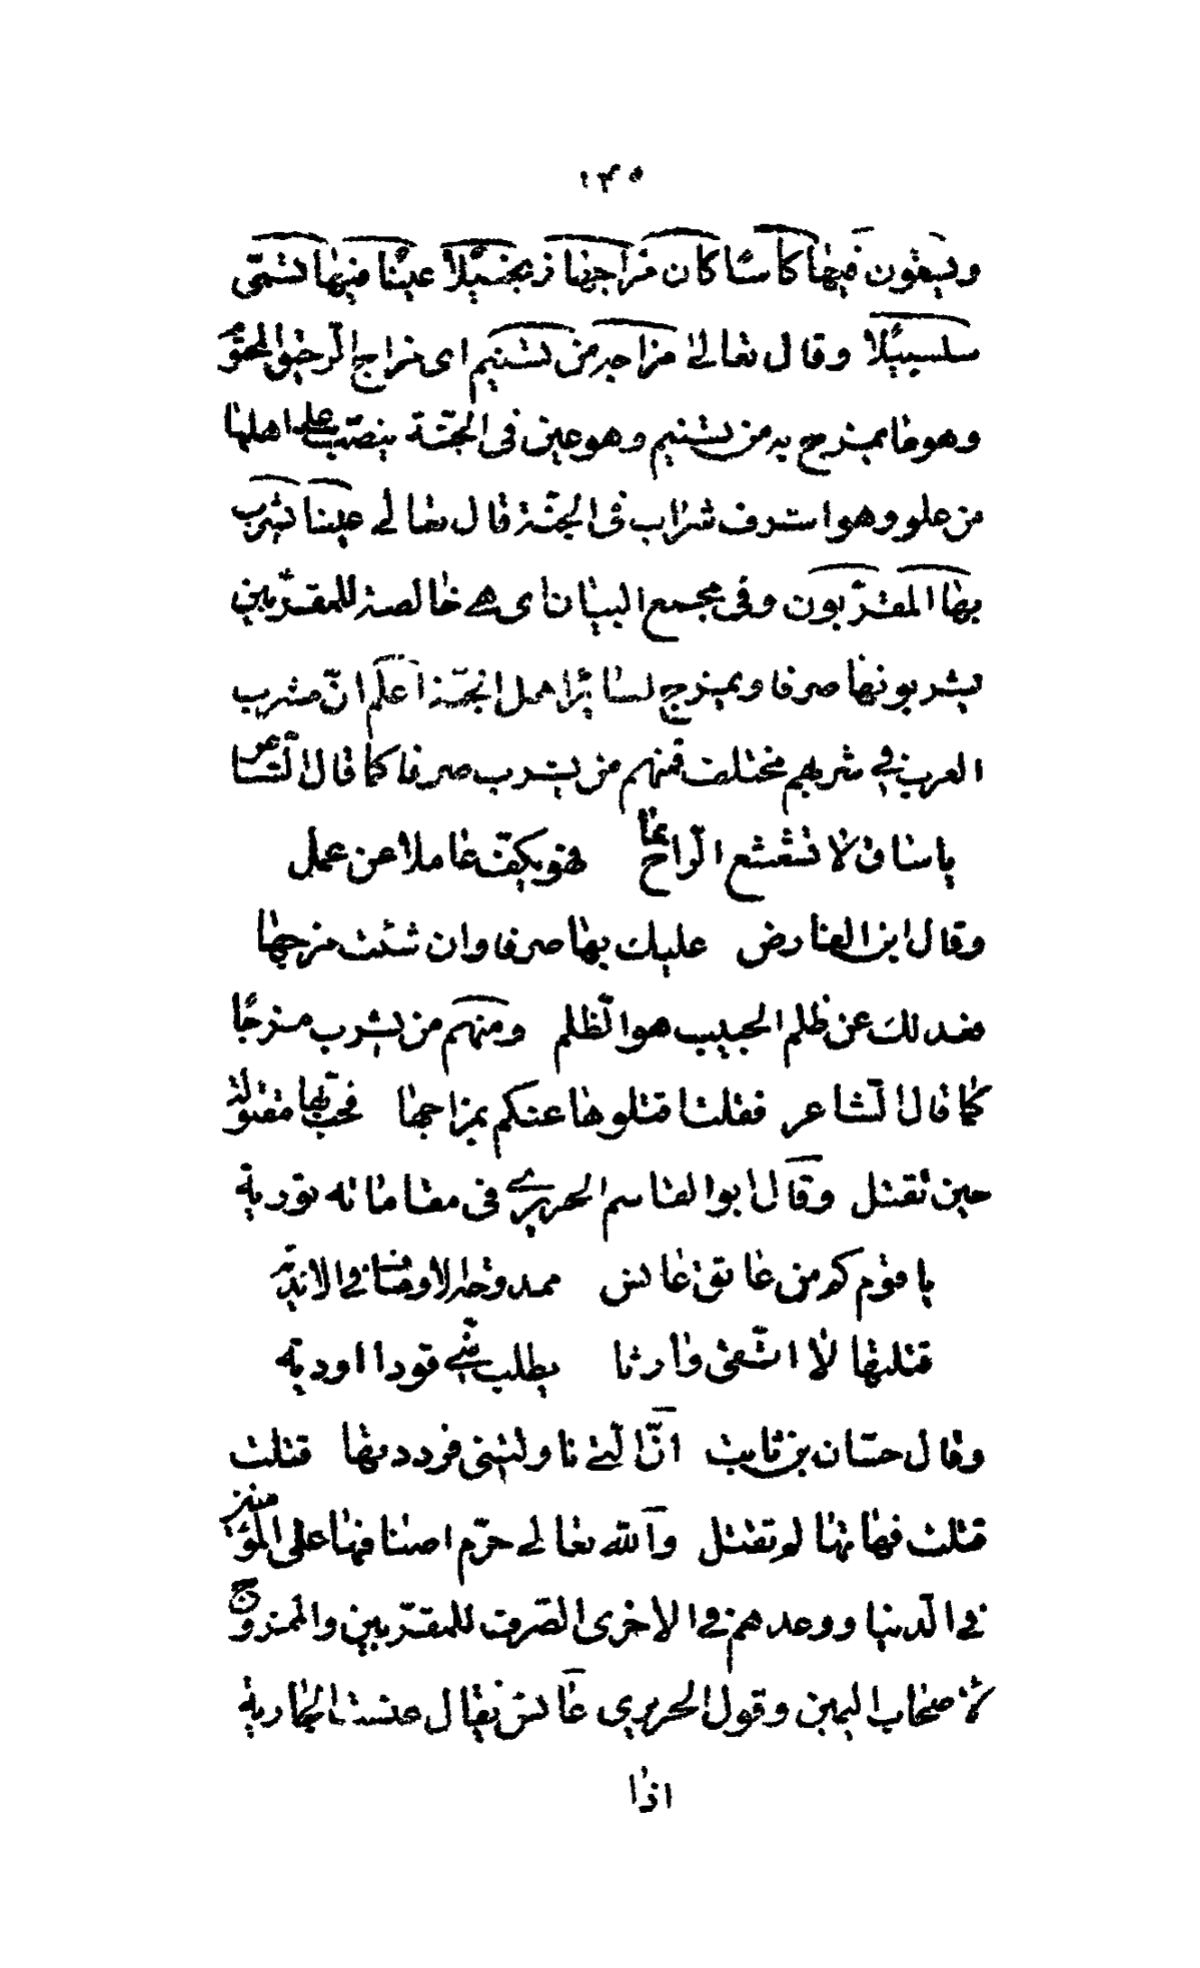 ١٣٥
ويسقون فيها كاسًا كان مزاجها زنجبيلًا عينًا فيها تسمّى
سلسبيلًا وقال تعالى مزاجه من تسنيم اى مزاج الرّحيق المختوم
وهو ما يمتزج به من تسنيم وهو عين فى الجنّة ينصّب على اهلها
من علو وهو اشرف شراب فى الجنّة قال تعالى عينا يشرب
بها المقرّبون وفى مجمع البيان اى هى خالصة للمقرّبين
يشربونها صرفا ويمتزج لسائر اهل الجنّة اعلم انّ مشرب
العرب فى شربهم مختلف فمنهم من يشرب صرفا كما قال الشّاعر
يا ساق لا تشعشع الرّاح بما فهو يكفّ عاملا عن عمل
وقال ابن الفارض عليك بها صرفا وان شئت مزجها
فعدلك عن ظلم الحبيب هو الظّلم ومنهم من يشرب مزجًا
كما قال الشّاعر فقلت اقتلوها عنكم بمزاجها فحبّ بها مقتولة
حين تقتل وقال ابو القاسم الحريرى فى مقاماته تورية
يا قوم كم من عاتق عانس ممدوحة الاوصاف فى الانديه
قتلتها لا اتّقى وارثا يطلب منّى قودا اوديه
وقال حسّان بن ثابت انّ الّتى ناولتنى فرددتها قتلت
قتلت فهاتها لم تقتل والله تعالى حرّم اصنافها على المؤمنين
فى الدّنيا ووعدهم فى الاخرى الصّرف للمقرّبين والممزوج
لاصحاب اليمين وقول الحريرى عانس يقال عنست الجارية
اذا